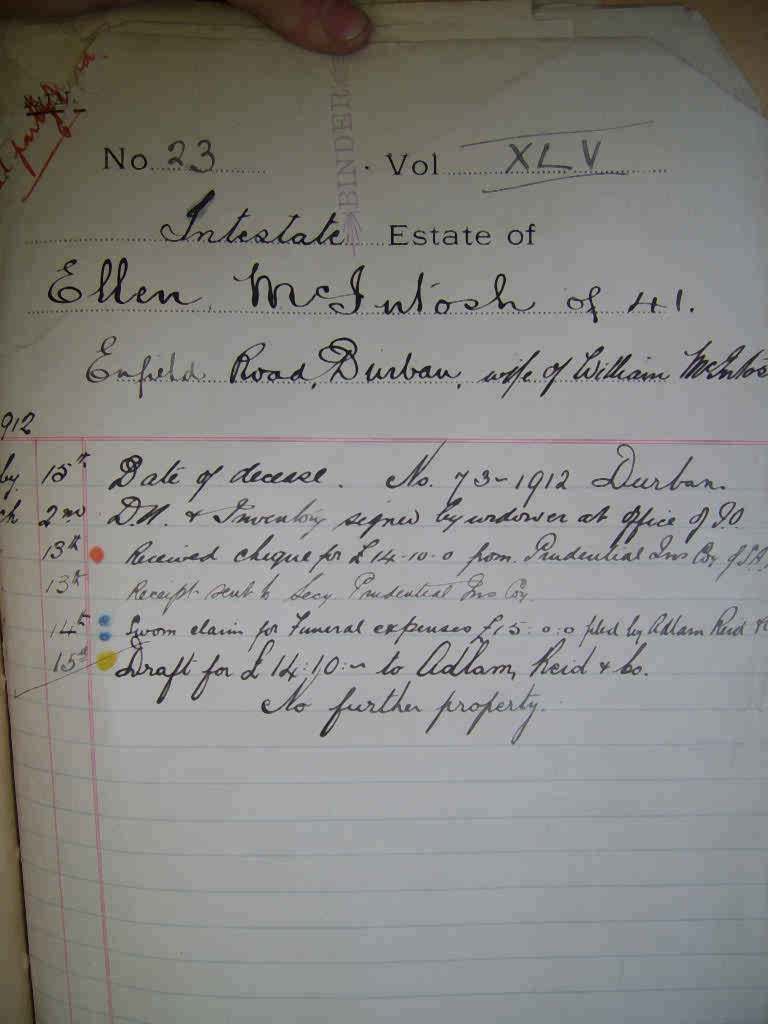 BINDER
No. 23 Vol XLV
Intestate Estate of
Ellen McIntosh of 41.
Enfield Road, Durban, wife of William McIntos
912
by 15th Date of decease. No. 73-1912 Durban.
ch 2nd D.N. & Inventory signed by widower at office of
13th Received cheque for £14-10-0 from Prudential Ins Coy of S.A.
13th Receipt sent to Secy Prudential Ins Coy.
14th Sworn claim for Funeral expenses £15:0:0 filed by Adlam Reid &
15th Draft for £14:10:- to Adlam, Reid & Co.
No further property.